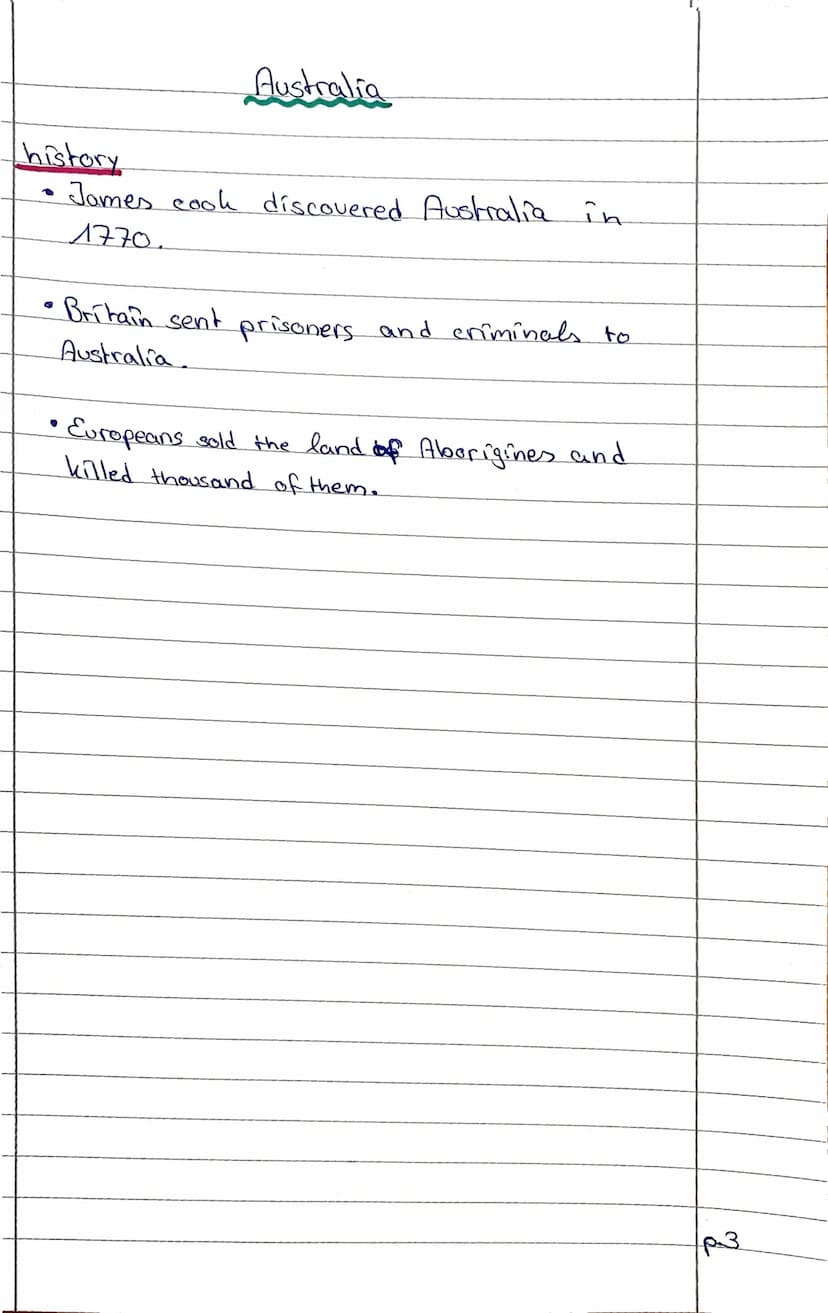 Australia
history
• James cook discovered Australia in
1770.
• Britain sent prisoners and criminals to
Australia.
• Europeans sold the land of Aborigines and
killed thousand of them.
p.3